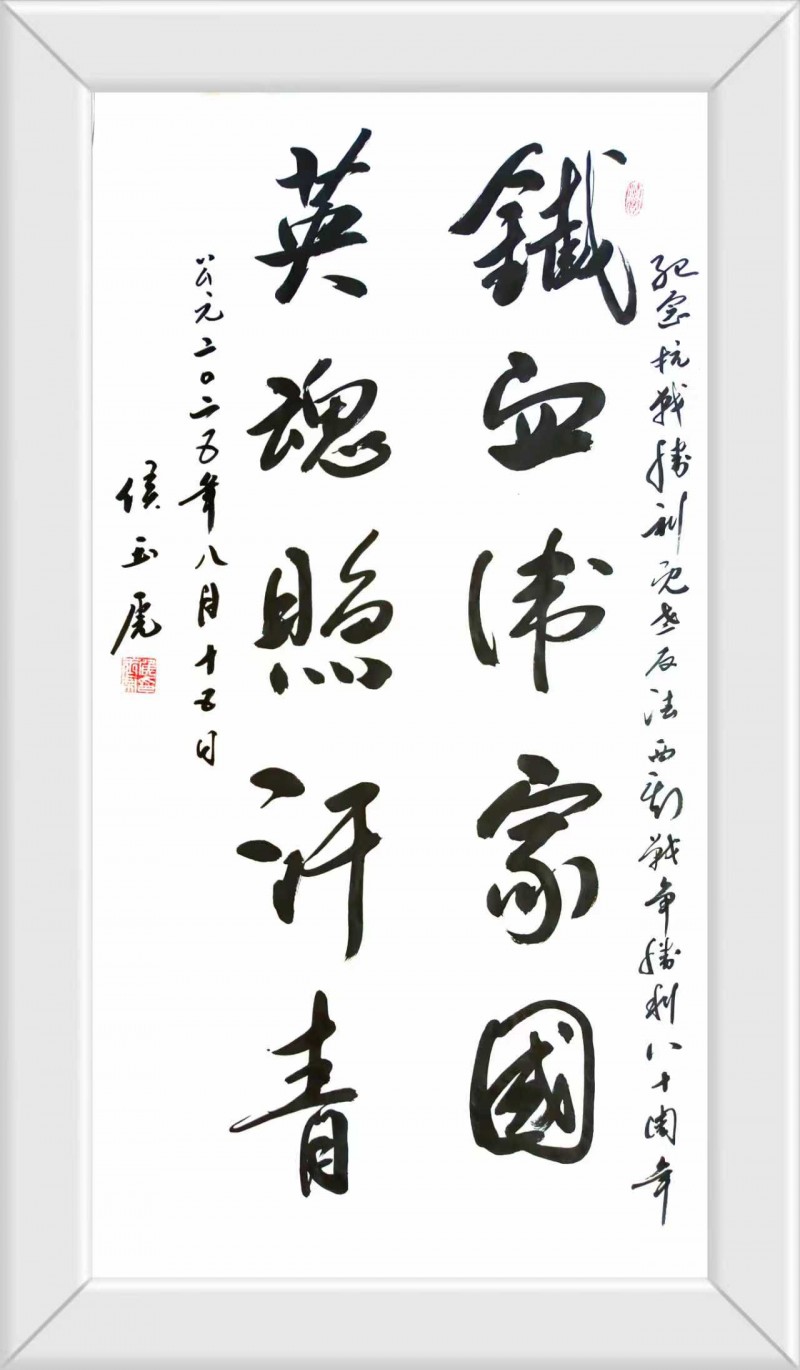 紀念抗戰勝利暨世反法西斯戰争勝利八十周年
鐵血衛家國
英魂照汗青
公元二〇二五年八月十五日
侯玉虎